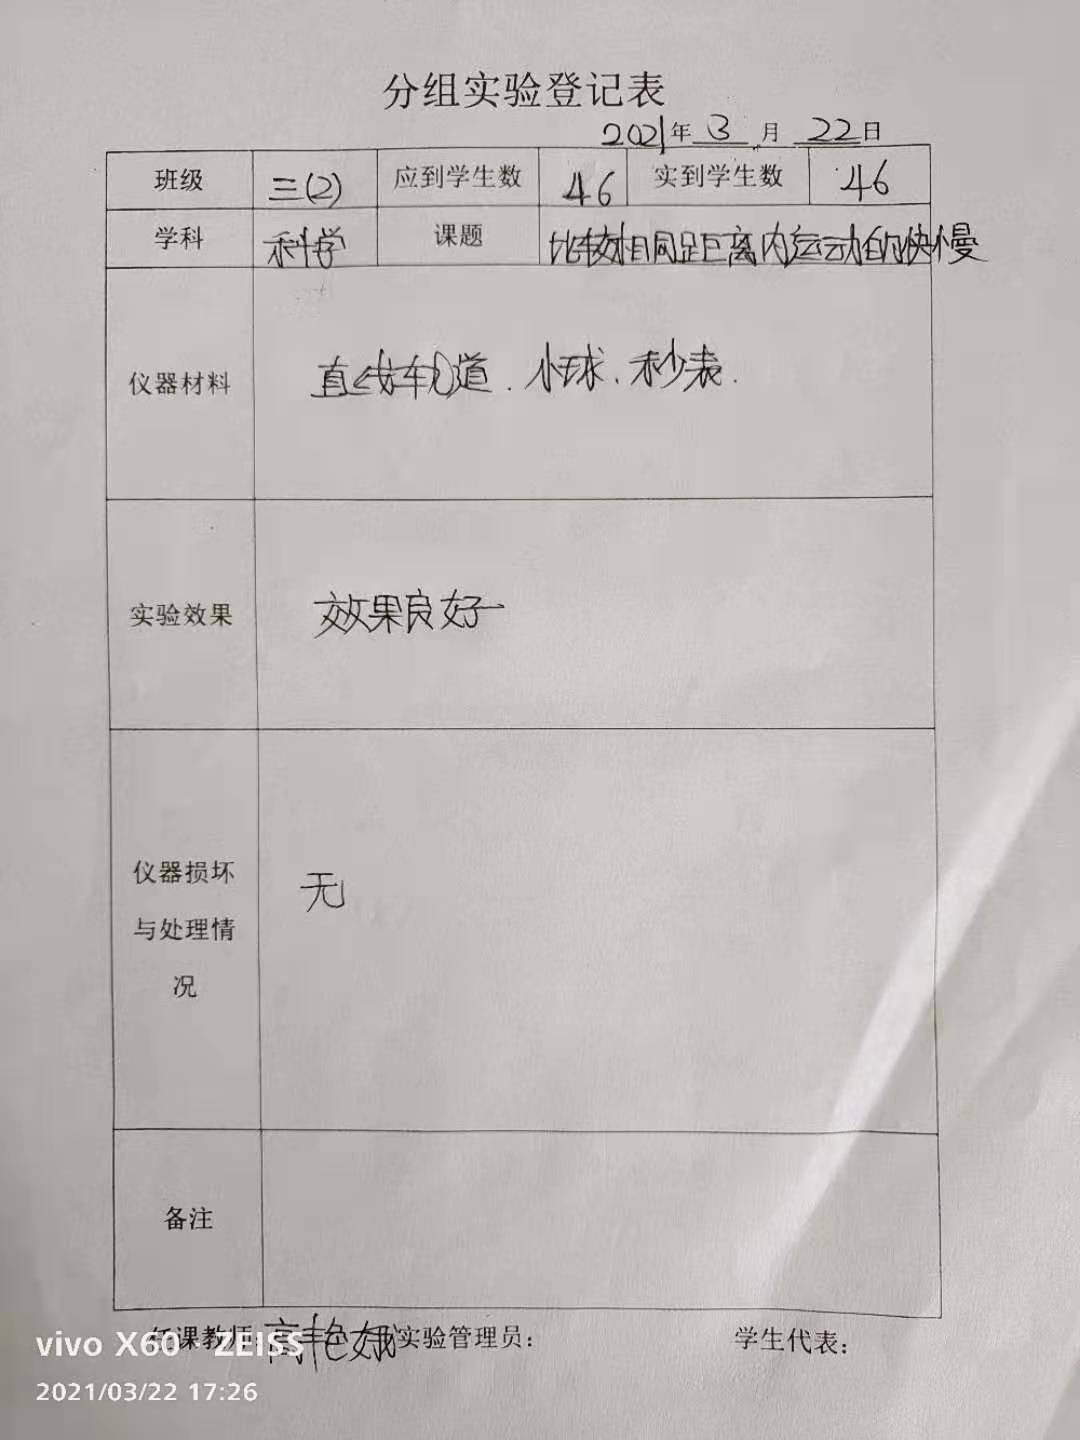 分组实验登记表
2021年 3 月 22日
班级 三(2) 应到学生数 46 实到学生数 46
学科 科学 课题 比较相同距离内运动的快慢
仪器材料 直线轨道、小球、秒表.
实验效果 效果良好
仪器损坏
与处理情 无
况
备注
任课教师:高艳娥 实验管理员: 学生代表:
vivo X60 · ZEISS
2021/03/22 17:26